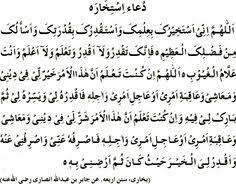 دُعَاءِ اِسْتِخَارَه
اَللّٰهُمَّ اِنِّیْ اَسْتَخِیْرُكَ بِعِلْمِكَ وَاَسْتَقْدِرُكَ بِقُدْرَتِكَ وَاَسْاَلُكَ
مِنْ فَضْلِكَ الْعَظِیْمِ فَاِنَّكَ تَقْدِرُ وَلَآ اَقْدِرُ وَتَعْلَمُ وَلَآ اَعْلَمُ وَاَنْتَ
عَلَّامُ الْغُیُوْبِ اَللّٰهُمَّ اِنْ كُنْتَ تَعْلَمُ اَنَّ هٰذَا الْاَمْرَ خَیْرٌ لِّیْ فِیْ دِیْنِیْ
وَمَعَاشِیْ وَعَاقِبَةِ اَمْرِیْ وَعَاجِلِ اَمْرِیْ وَاٰجِلِهٖ فَاقْدِرْهُ لِیْ وَیَسِّرْهُ لِیْ ثُمَّ
بَارِكْ لِیْ فِیْهِ وَاِنْ كُنْتَ تَعْلَمُ اَنَّ هٰذَا الْاَمْرَ شَرٌّ لِّیْ فِیْ دِیْنِیْ
وَمَعَاشِیْ وَعَاقِبَةِ اَمْرِیْ وَعَاجِلِ اَمْرِیْ وَاٰجِلِهٖ فَاصْرِفْهُ عَنِّیْ وَاصْرِفْنِیْ عَنْهُ
وَاقْدِرْ لِیَ الْخَیْرَ حَیْثُ كَانَ ثُمَّ اَرْضِنِیْ بِهٖ
(بخاری، سنن اربعه. عن جابر بن عبدالله انصاری رضی الله عنه)